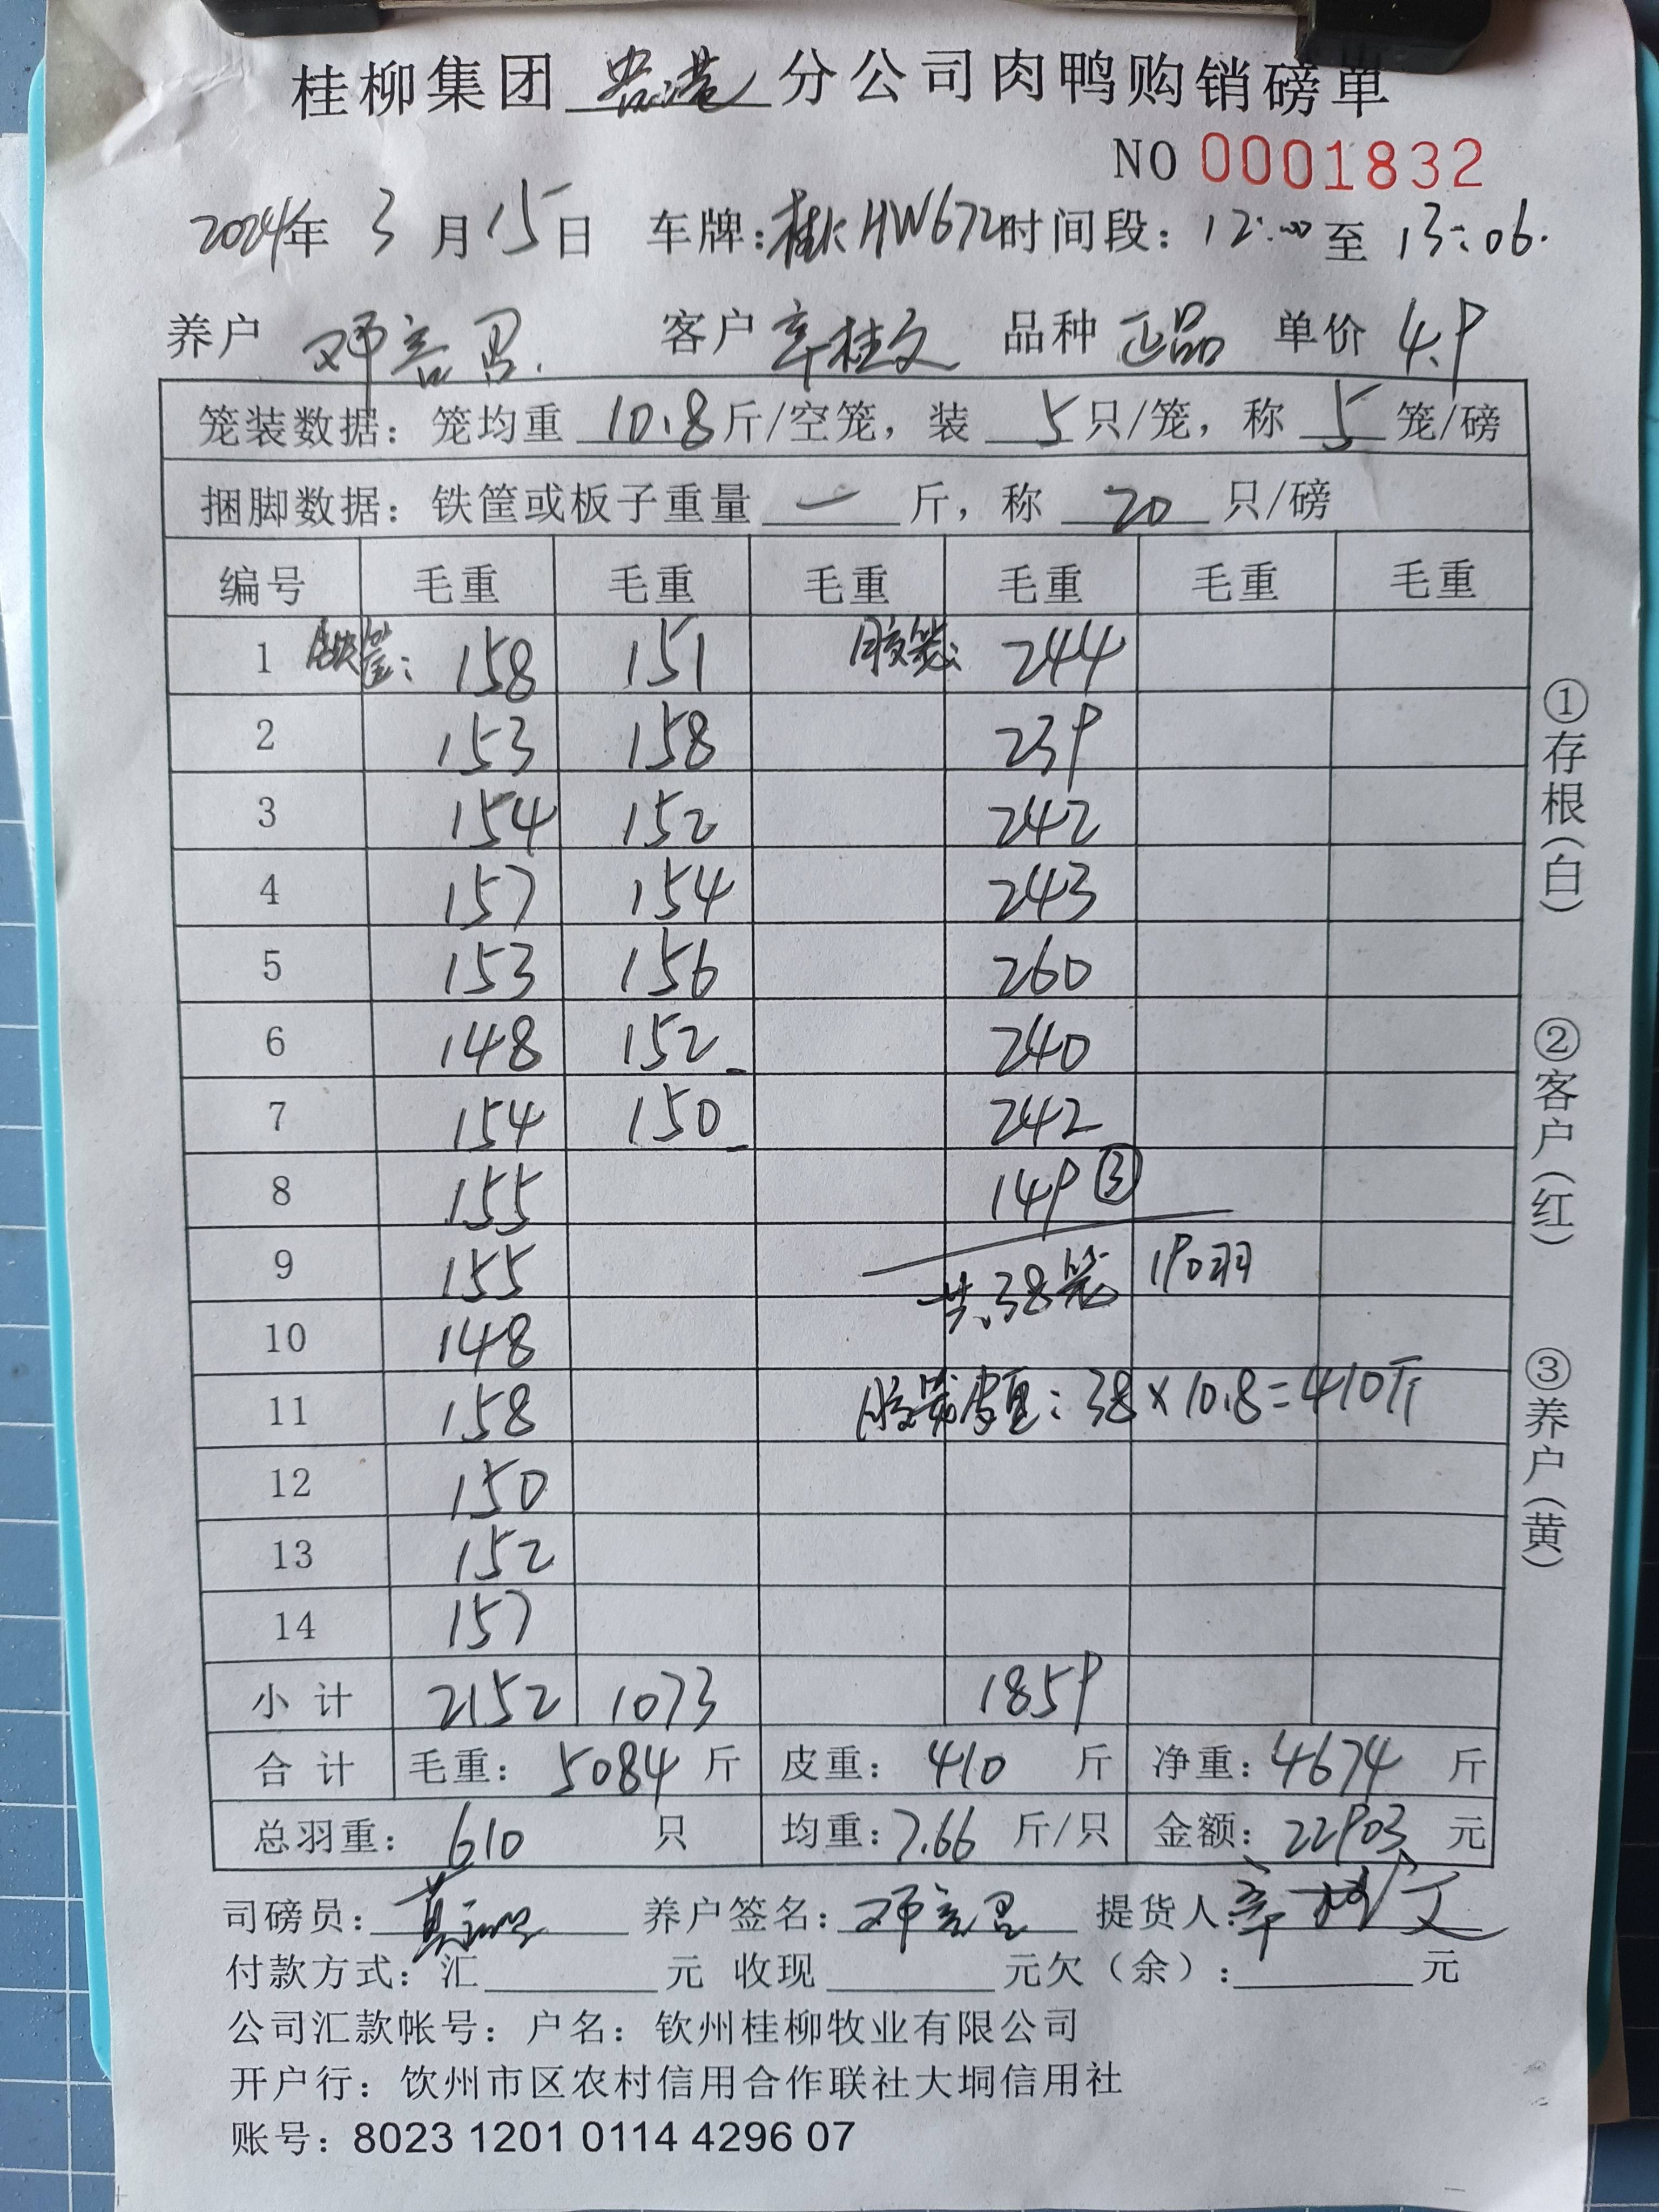 桂柳集团 贵港 分公司肉鸭购销磅单
NO 0001832
2024年 3 月 15 日 车牌:桂K HW672 时间段: 12:00 至 13:06.
养户 邓言昌. 客户 辛桂文 品种 正品 单价 4.9
笼装数据: 笼均重 10.8 斤/空笼, 装 5 只/笼, 称 5 笼/磅
捆脚数据: 铁筐或板子重量 一 斤, 称 20 只/磅
编号 毛重 毛重 毛重 毛重 毛重 毛重
1 铁筐: 158 151 胶笼: 244
2 153 158 239
3 154 152 242
4 157 154 243
5 153 156 260
6 148 152 240
7 154 150 242
8 155 149 ③
9 155 共38笼 190羽
10 148
11 158 胶笼皮重: 38×10.8=410斤
12 150
13 152
14 157
小计 2152 1073 1859
合计 毛重: 5084 斤 皮重: 410 斤 净重: 4674 斤
总羽重: 610 只 均重: 7.66 斤/只 金额: 22903 元
司磅员: 养户签名: 邓言昌 提货人: 辛桂文
付款方式: 汇 元 收现 元欠(余): 元
公司汇款帐号: 户名: 钦州桂柳牧业有限公司
开户行: 钦州市区农村信用合作联社大垌信用社
账号: 8023 1201 0114 4296 07
①存根(白)
②客户(红)
③养户(黄)